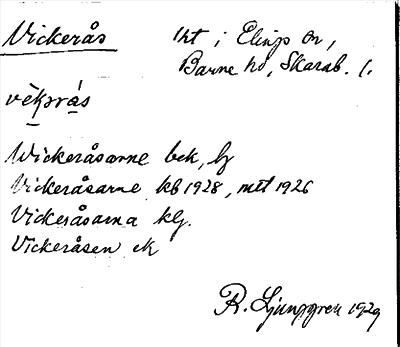 Vickerås
trt i Elings sn,
Barne hd, Skarab. l.
vèkərás
Wickeråsarne bek, lj
Vickeråsarne kb 1928, mtl 1926
Vickeråsarna klj.
Vickeråsen ek
R. Ljunggren 1929